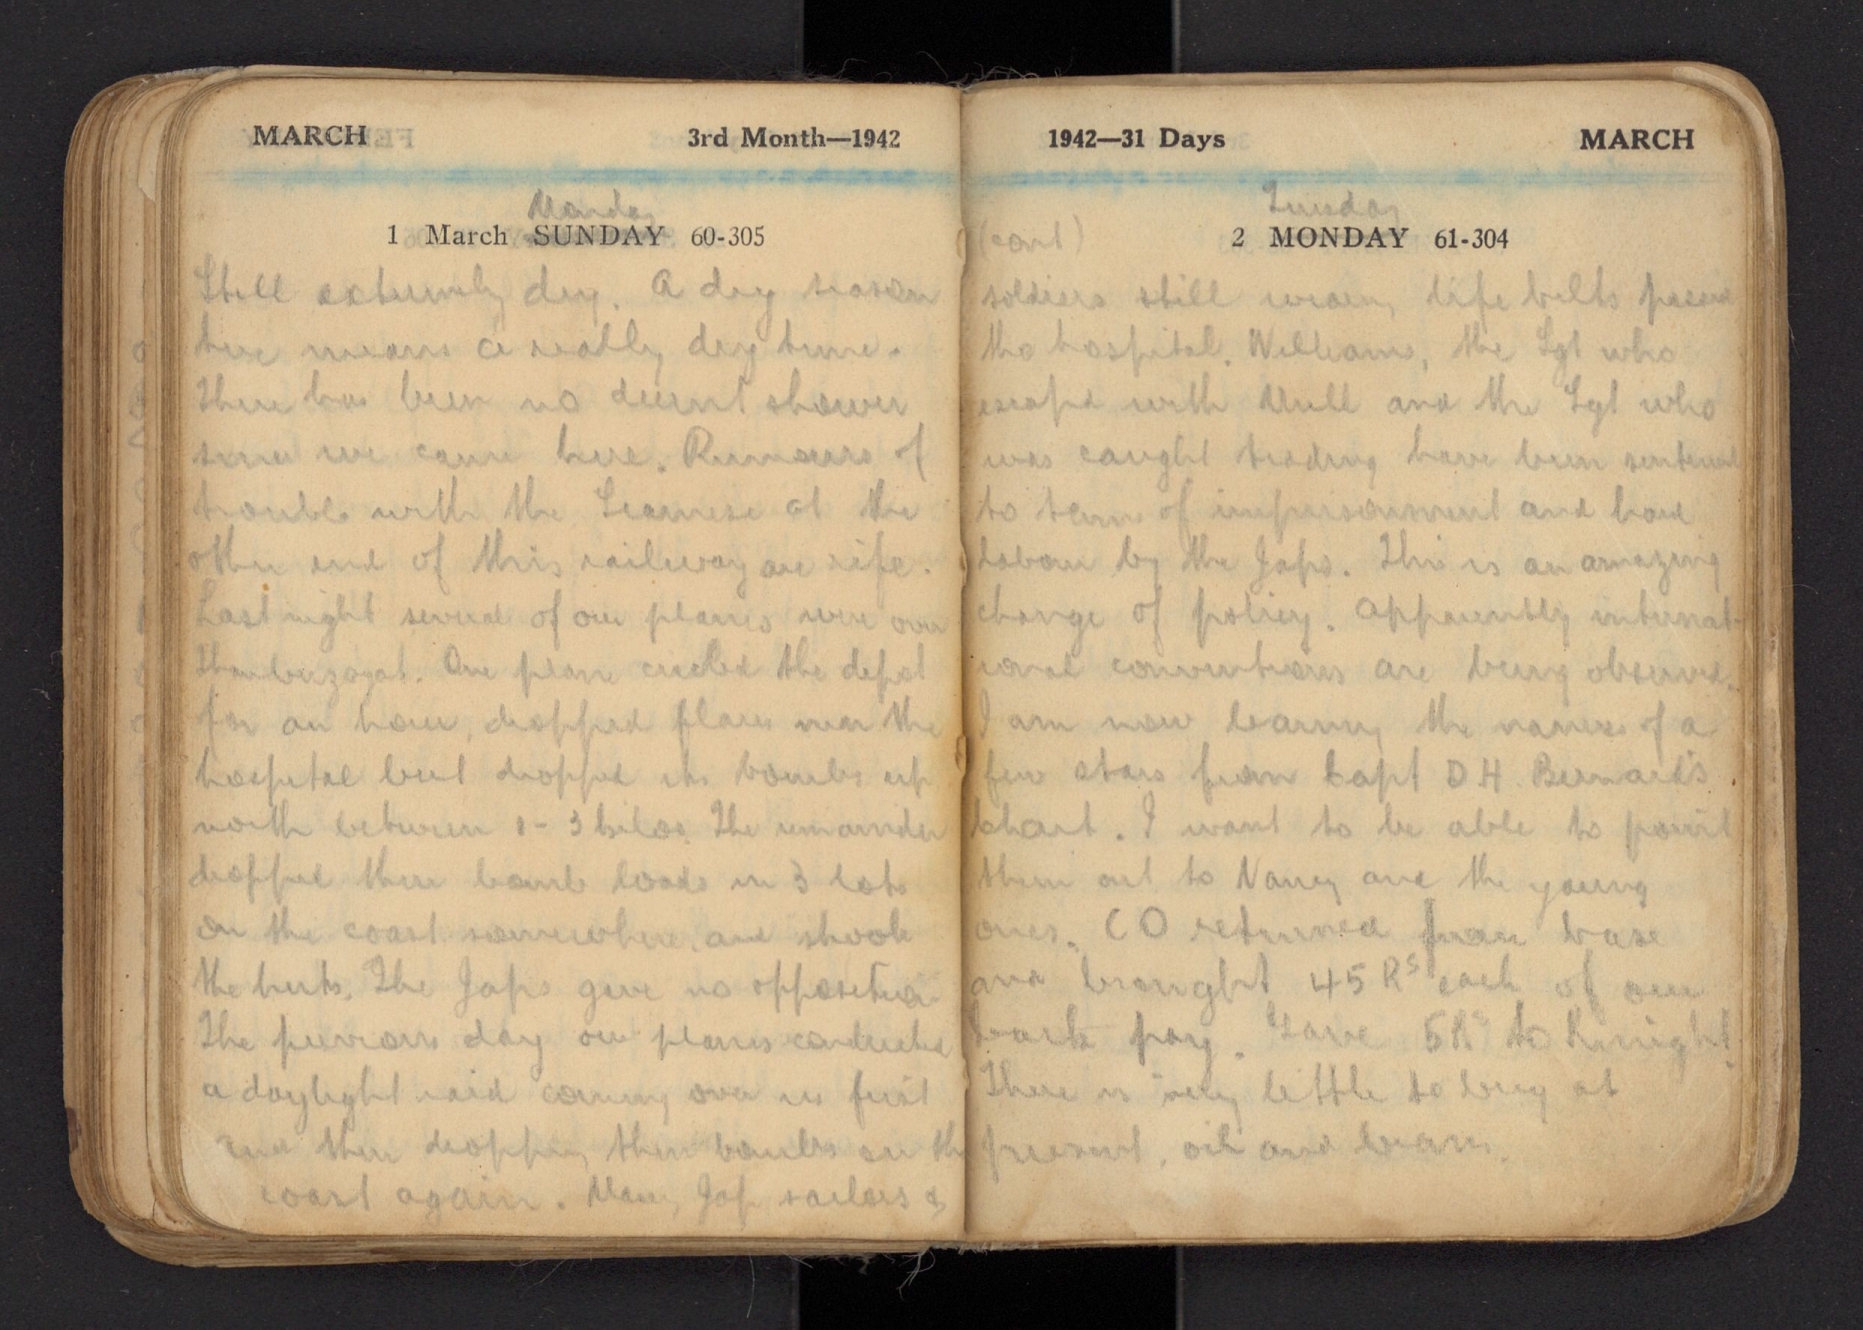 MARCH 3rd Month—1942
Monday
1 March SUNDAY 60-305
Still extremely dry. A dry season
here means a really dry time.
There has been no decent shower
since we came here. Rumours of
trouble with the Siamese at the
other end of this railway are rife.
Last night several of our planes were over
Thanbuzayat. One plane circled the depot
for an hour, dropped flares near the
hospital but dropped its bombs up
north between 1-3 kilos. The remainder
dropped there bomb loads in 3 lots
on the coast somewhere and shook
the huts. The Japs gave no opposition
The previous day our planes conducted
a daylight raid coming over us first
and then dropping their bombs on the
coast again. Many Jap sailors &
1942—31 Days MARCH
Tuesday
(cont) 2 MONDAY 61-304
soldiers still wearing life belts passed
the hospital. Williams, the Sgt who
escaped with Mull and the Sgt who
was caught trading have been sentenced
to term of imprisonment and hard
labour by the Japs. This is an amazing
change of policy. Apparently internat-
ional conventions are being observed.
I am now learning the names of a
few stars from Capt D H Bernard's
chart. I want to be able to point
them out to Nancy and the young
ones. CO returned from base
and brought 45 Rs each of our
back pay. Gave 5Rs to Knight.
There is very little to buy at
present, oil and beans.